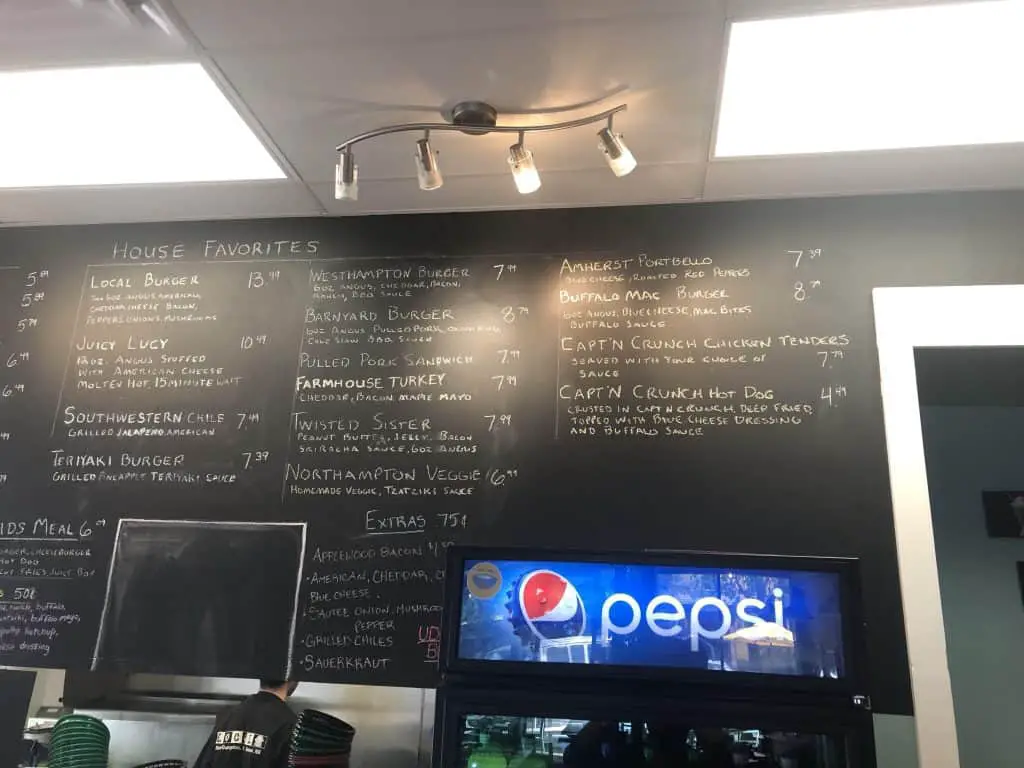 5.89
5.89
5.79
6.49
6.49
HOUSE FAVORITES
LOCAL BURGER 13.49
TWO 6OZ. ANGUS, AMERICAN,
CHEDDAR CHEESE, BACON,
PEPPERS, ONIONS, MUSHROOMS
JUICY LUCY 10.49
12OZ. ANGUS STUFFED
WITH AMERICAN CHEESE
MOLTEN HOT, 15 MINUTE WAIT
SOUTHWESTERN CHILE 7.49
GRILLED JALAPEÑO, AMERICAN
TERIYAKI BURGER 7.39
GRILLED PINEAPPLE TERIYAKI SAUCE
WESTHAMPTON BURGER 7.99
6OZ ANGUS, CHEDDAR, BACON,
RANCH, BBQ SAUCE
BARNYARD BURGER 8.79
6OZ ANGUS PULLED PORK, ONION RING
COLE SLAW BBQ SAUCE
PULLED PORK SANDWICH 7.99
FARMHOUSE TURKEY 7.99
CHEDDAR, BACON, MAPLE MAYO
TWISTED SISTER 7.99
PEANUT BUTTER, JELLY, BACON
SRIRACHA SAUCE, 6OZ ANGUS
NORTHAMPTON VEGGIE 6.99
HOMEMADE VEGGIE, TZATZIKI SAUCE
AMHERST PORTBELLO 7.39
BLUE CHEESE, ROASTED RED PEPPERS
BUFFALO MAC BURGER 8.79
6OZ ANGUS, BLUE CHEESE, MAC BITES
BUFFALO SAUCE
CAPT'N CRUNCH CHICKEN TENDERS
SERVED WITH YOUR CHOICE OF 7.79
SAUCE
CAPT'N CRUNCH HOT DOG 4.49
CRUSTED IN CAPT'N CRUNCH, DEEP FRIED,
TOPPED WITH BLUE CHEESE DRESSING
AND BUFFALO SAUCE
IDS MEAL 6.09
HOT DOG
50¢
EXTRAS 75¢
APPLEWOOD BACON
• AMERICAN, CHEDDAR,
BLUE CHEESE
• SAUTEE ONION, MUSHROOM
PEPPER
• GRILLED CHILES
• SAUERKRAUT
pepsi
LOCAL